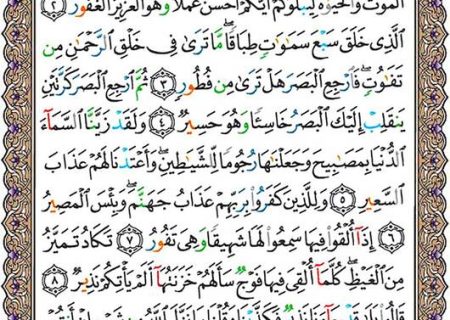 ٱلْمَوْتَ وَٱلْحَيَوٰةَ لِيَبْلُوَكُمْ أَيُّكُمْ أَحْسَنُ عَمَلًا ۚ وَهُوَ ٱلْعَزِيزُ ٱلْغَفُورُ ٢
ٱلَّذِى خَلَقَ سَبْعَ سَمَٰوَٰتٍ طِبَاقًا ۖ مَّا تَرَىٰ فِى خَلْقِ ٱلرَّحْمَٰنِ مِن
تَفَٰوُتٍ ۖ فَٱرْجِعِ ٱلْبَصَرَ هَلْ تَرَىٰ مِن فُطُورٍ ٣ ثُمَّ ٱرْجِعِ ٱلْبَصَرَ كَرَّتَيْنِ
يَنقَلِبْ إِلَيْكَ ٱلْبَصَرُ خَاسِئًا وَهُوَ حَسِيرٌ ٤ وَلَقَدْ زَيَّنَّا ٱلسَّمَآءَ
ٱلدُّنْيَا بِمَصَٰبِيحَ وَجَعَلْنَٰهَا رُجُومًا لِّلشَّيَٰطِينِ ۖ وَأَعْتَدْنَا لَهُمْ عَذَابَ
ٱلسَّعِيرِ ٥ وَلِلَّذِينَ كَفَرُوا۟ بِرَبِّهِمْ عَذَابُ جَهَنَّمَ ۖ وَبِئْسَ ٱلْمَصِيرُ
٦ إِذَآ أُلْقُوا۟ فِيهَا سَمِعُوا۟ لَهَا شَهِيقًا وَهِىَ تَفُورُ ٧ تَكَادُ تَمَيَّزُ
مِنَ ٱلْغَيْظِ ۖ كُلَّمَآ أُلْقِىَ فِيهَا فَوْجٌ سَأَلَهُمْ خَزَنَتُهَآ أَلَمْ يَأْتِكُمْ نَذِيرٌ ٨